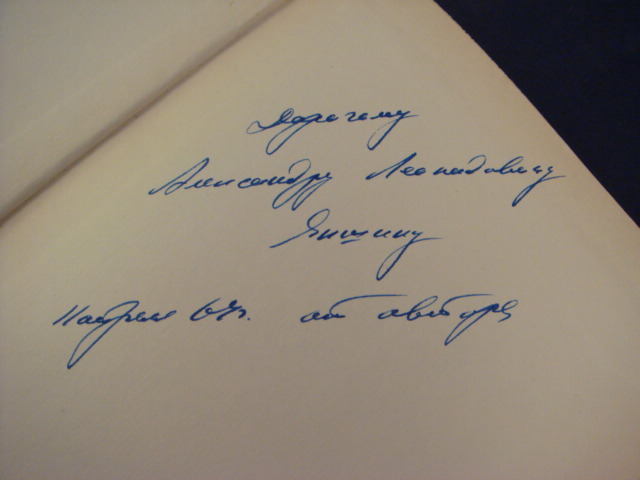 Дорогому
Александру Леонидовичу
Яншину
11 апреля 67г. от автора